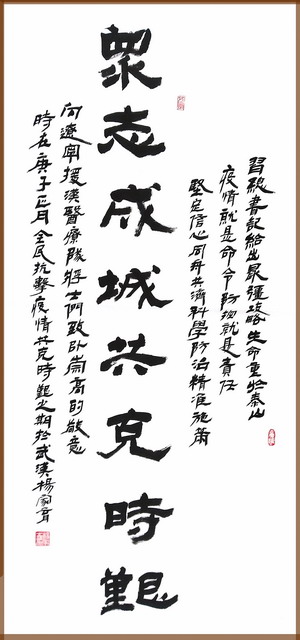 習總書記給出最彊生命重於泰山
疫情就是命令防控就是責任
堅定信心同舟共濟科學防治精准施策
眾志成城共克時艱
向遼寧援漢醫療隊將士們致以崇高的敬意
時在庚子正月全民抗擊疫情共克時艱之期於武漢楊家